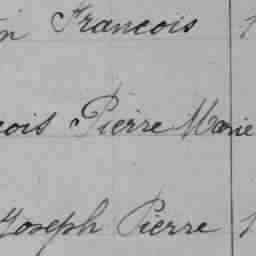 François
Pierre Marie
Joseph Pierre